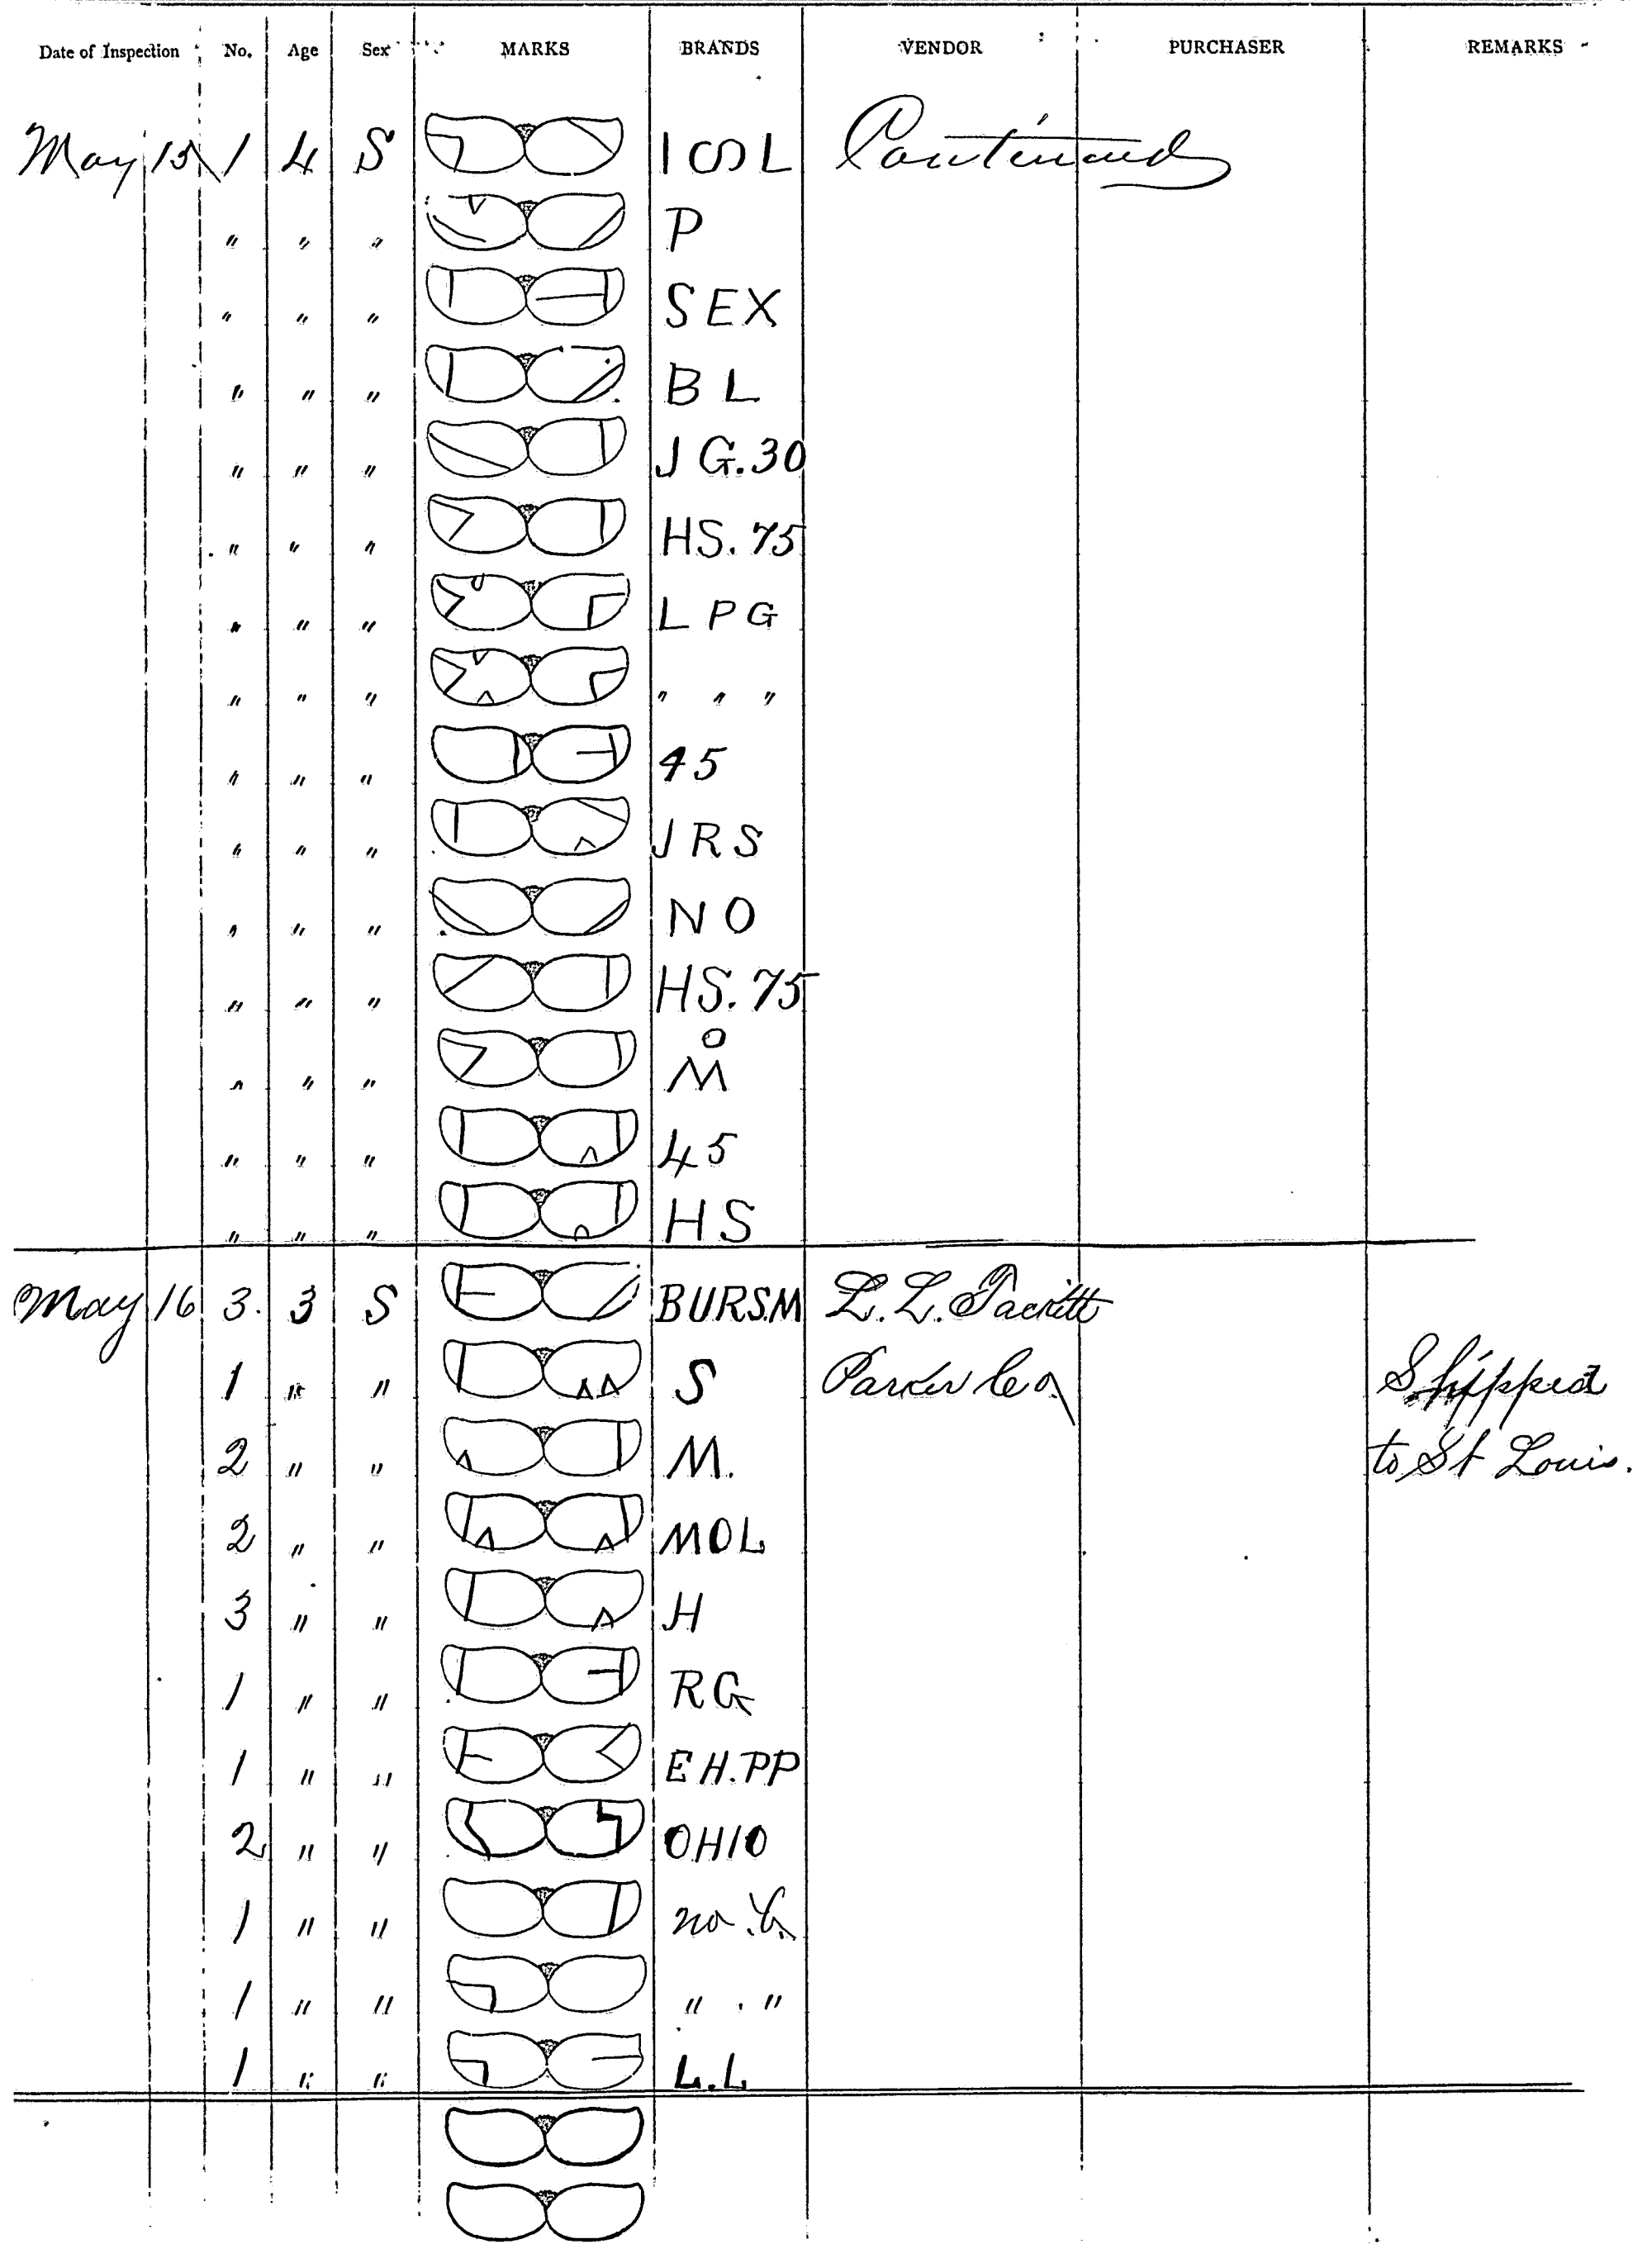 Date of Inspection No. Age Sex MARKS BRANDS VENDOR PURCHASER REMARKS
May 15 1 4 S I S L Continued
" " " P
" " " SEX
" " " BL
" " " JG.30
" " " HS.75
" " " LPG
" " " " " "
" " " 45
" " " JRS
" " " NO
" " " HS.75
" " " O
M
" " " 45
" " " HS
May 16 3. 3 S BURSM L. L. Tackitt
1 " " S Parker Co Shipped
2 " " M. to St Louis.
2 " " MOL
3 " " H
1 " " RG
1 " " EH.PP
2 " " OHIO
1 " " no b.
1 " " " . "
1 " " L.L